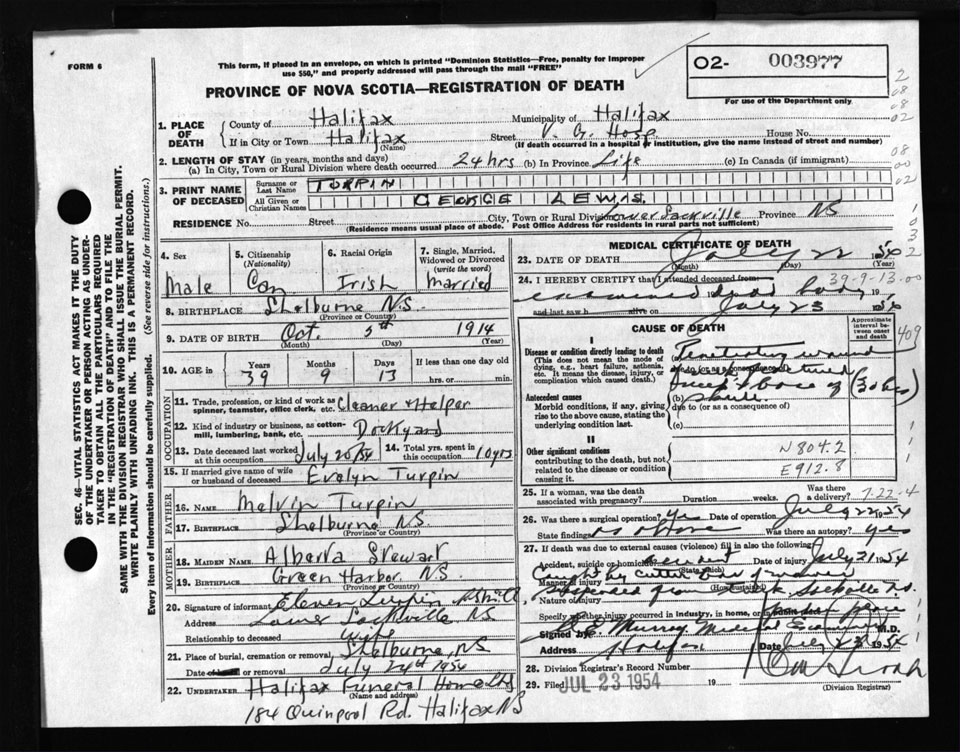 FORM 6
This form, if placed in an envelope, on which is printed "Dominion Statistics—Free, penalty for improper
use $50," and properly addressed will pass through the mail "FREE"
O2- 003977
For use of the Department only
PROVINCE OF NOVA SCOTIA—REGISTRATION OF DEATH
2
08
08
02
08
00
02
1. PLACE OF DEATH
County of Halifax Municipality of Halifax
If in City or Town Halifax Street V. G. Hosp. House No.
(Name) (If death occurred in a hospital or institution, give its name instead of street and number)
2. LENGTH OF STAY (in years, months and days)
(a) In City, Town or Rural Division where death occurred 24 hrs (b) In Province Life (c) In Canada (if immigrant)
3. PRINT NAME OF DECEASED
Surname or Last Name TURPIN
All Given or Christian Names GEORGE LEWIS
RESIDENCE No. Street City, Town or Rural Division Lower Sackville Province NS
(Residence means usual place of abode. Post Office Address for residents in rural parts not sufficient)
4. Sex Male
5. Citizenship (Nationality) Can
6. Racial Origin Irish
7. Single, Married, Widowed or Divorced (write the word) Married
8. BIRTHPLACE Shelburne N.S.
(Province or Country)
9. DATE OF BIRTH Oct. 5th 1914
(Month) (Day) (Year)
10. AGE in Years 39 Months 9 Days 13 If less than one day old hrs. or min.
OCCUPATION
11. Trade, profession, or kind of work as spinner, teamster, office clerk, etc. Cleaner & Helper
12. Kind of industry or business, as cotton-mill, lumbering, bank, etc. Dockyard
13. Date deceased last worked at this occupation July 20/54
14. Total yrs. spent in this occupation 10 yrs.
15. If married give name of wife or husband of deceased Evelyn Turpin
FATHER
16. NAME Melvin Turpin
17. BIRTHPLACE Shelburne NS
(Province or Country)
MOTHER
18. MAIDEN NAME Alberta Stewart
19. BIRTHPLACE Green Harbor N.S.
(Province or Country)
20. Signature of informant Turpin
Address Lower Sackville NS
Relationship to deceased wife
21. Place of burial, cremation or removal Shelburne, NS
Date of burial or removal July 24th 1954
22. UNDERTAKER Halifax Funeral Home Ltd
(Name and address)
184 Quinpool Rd. Halifax NS
MEDICAL CERTIFICATE OF DEATH
23. DATE OF DEATH July 22
(Month) (Day) (Year)
39-9-13-00
24. I HEREBY CERTIFY that I attended deceased from
examined dead body 19
and last saw h alive on July 23 19
CAUSE OF DEATH
Approximate interval between onset and death
I
Disease or condition directly leading to death
(This does not mean the mode of dying, e.g., heart failure, asthenia, etc. It means the disease, injury, or complication which caused death.)
Penetrating wound
due to (or as a consequence of)
Antecedent causes
Morbid conditions, if any, giving rise to the above cause, stating the underlying condition last.
(b) skull
due to (or as a consequence of)
(c)
(30 hrs)
409
II
Other significant conditions
contributing to the death, but not related to the disease or condition causing it.
N804.2
E912.8
25. If a woman, was the death associated with pregnancy? Duration weeks. Was there a delivery?
7-22-4
26. Was there a surgical operation? yes Date of operation July 22 1954
State findings as above Was there an autopsy? yes
27. If death was due to external causes (violence) fill in also the following:
Accident, suicide or homicide? accident Date of injury July 21 1954
(State which)
Manner of injury Caught by
(How sustained)
Nature of injury suspended from
Specify whether injury occurred in industry, in home, or in public place
Signed by Murray Medical Examiner M.D.
Address Halifax Date July 23 1954
28. Division Registrar's Record Number
29. Filed JUL 23 1954 19
(Division Registrar)
SEC. 46—VITAL STATISTICS ACT MAKES IT THE DUTY
OF THE UNDERTAKER OR PERSON ACTING AS UNDER-
TAKER TO OBTAIN ALL THE PARTICULARS REQUIRED
IN THE "REGISTRATION OF DEATH" AND TO FILE THE
SAME WITH THE DIVISION REGISTRAR WHO SHALL ISSUE THE BURIAL PERMIT.
WRITE PLAINLY WITH UNFADING INK. THIS IS A PERMANENT RECORD.
Every item of information should be carefully supplied. (See reverse side for instructions.)